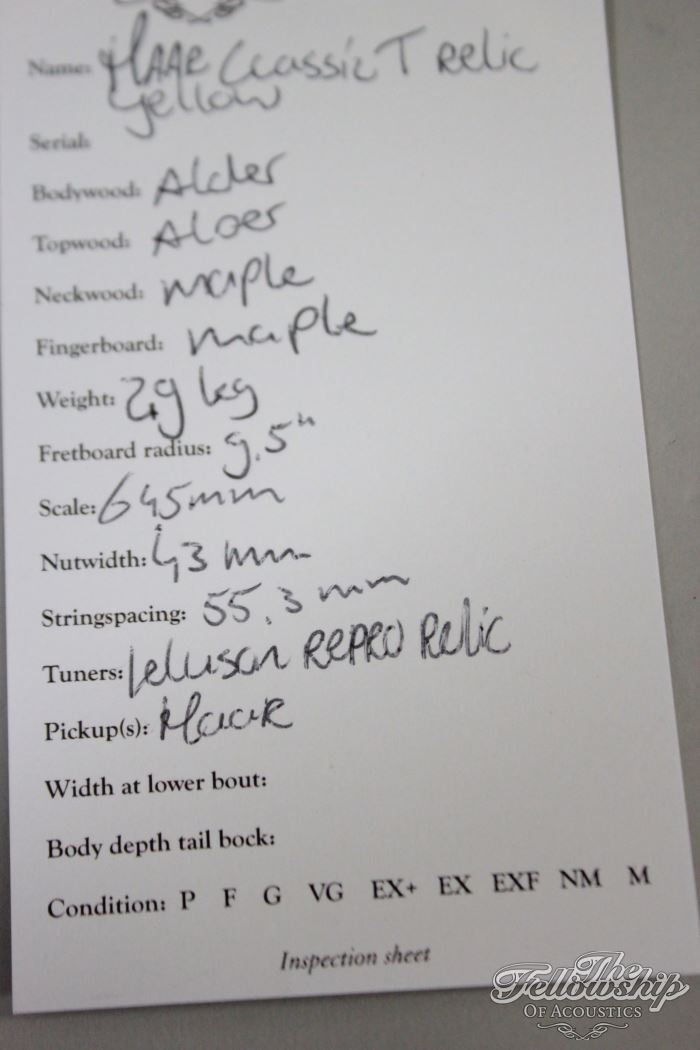 Name: HAAR Classic T Relic
Yellow
Serial:
Bodywood: Alder
Topwood: Alder
Neckwood: maple
Fingerboard: maple
Weight: 2,9 kg
Fretboard radius: 9.5"
Scale: 645mm
Nutwidth: 43 mm
Stringspacing: 55.3 mm
Tuners: kluson REPRO Relic
Pickup(s): Haar
Width at lower bout:
Body depth tail bock:
Condition: P F G VG EX+ EX EXF NM M
Inspection sheet
The
Fellowship
OF ACOUSTICS